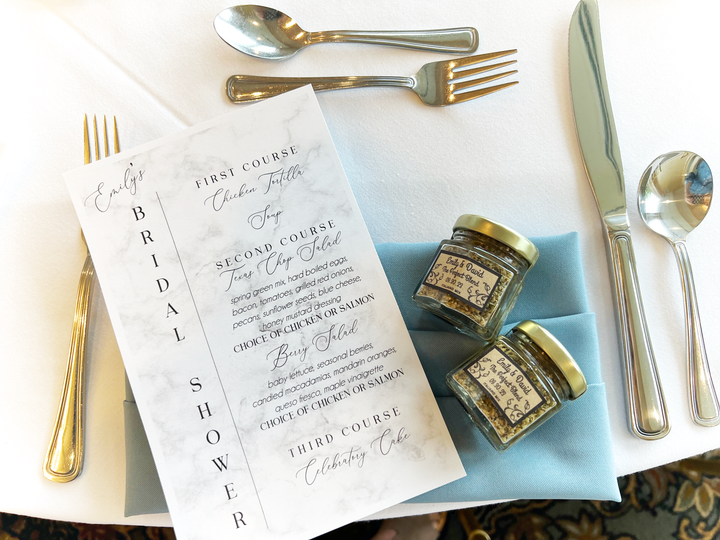 Emily's
BRIDAL SHOWER
FIRST COURSE
Chicken Tortilla
Soup
SECOND COURSE
Texas Chop Salad
spring green mix, hard boiled eggs,
bacon, tomatoes, grilled red onions,
pecans, sunflower seeds, blue cheese,
honey mustard dressing
CHOICE OF CHICKEN OR SALMON
Berry Salad
baby lettuce, seasonal berries,
candied macadamias, mandarin oranges,
queso fresco, maple vinaigrette
CHOICE OF CHICKEN OR SALMON
THIRD COURSE
Celebratory Cake
Emily & David
The Perfect Blend
Emily & David
The Perfect Blend